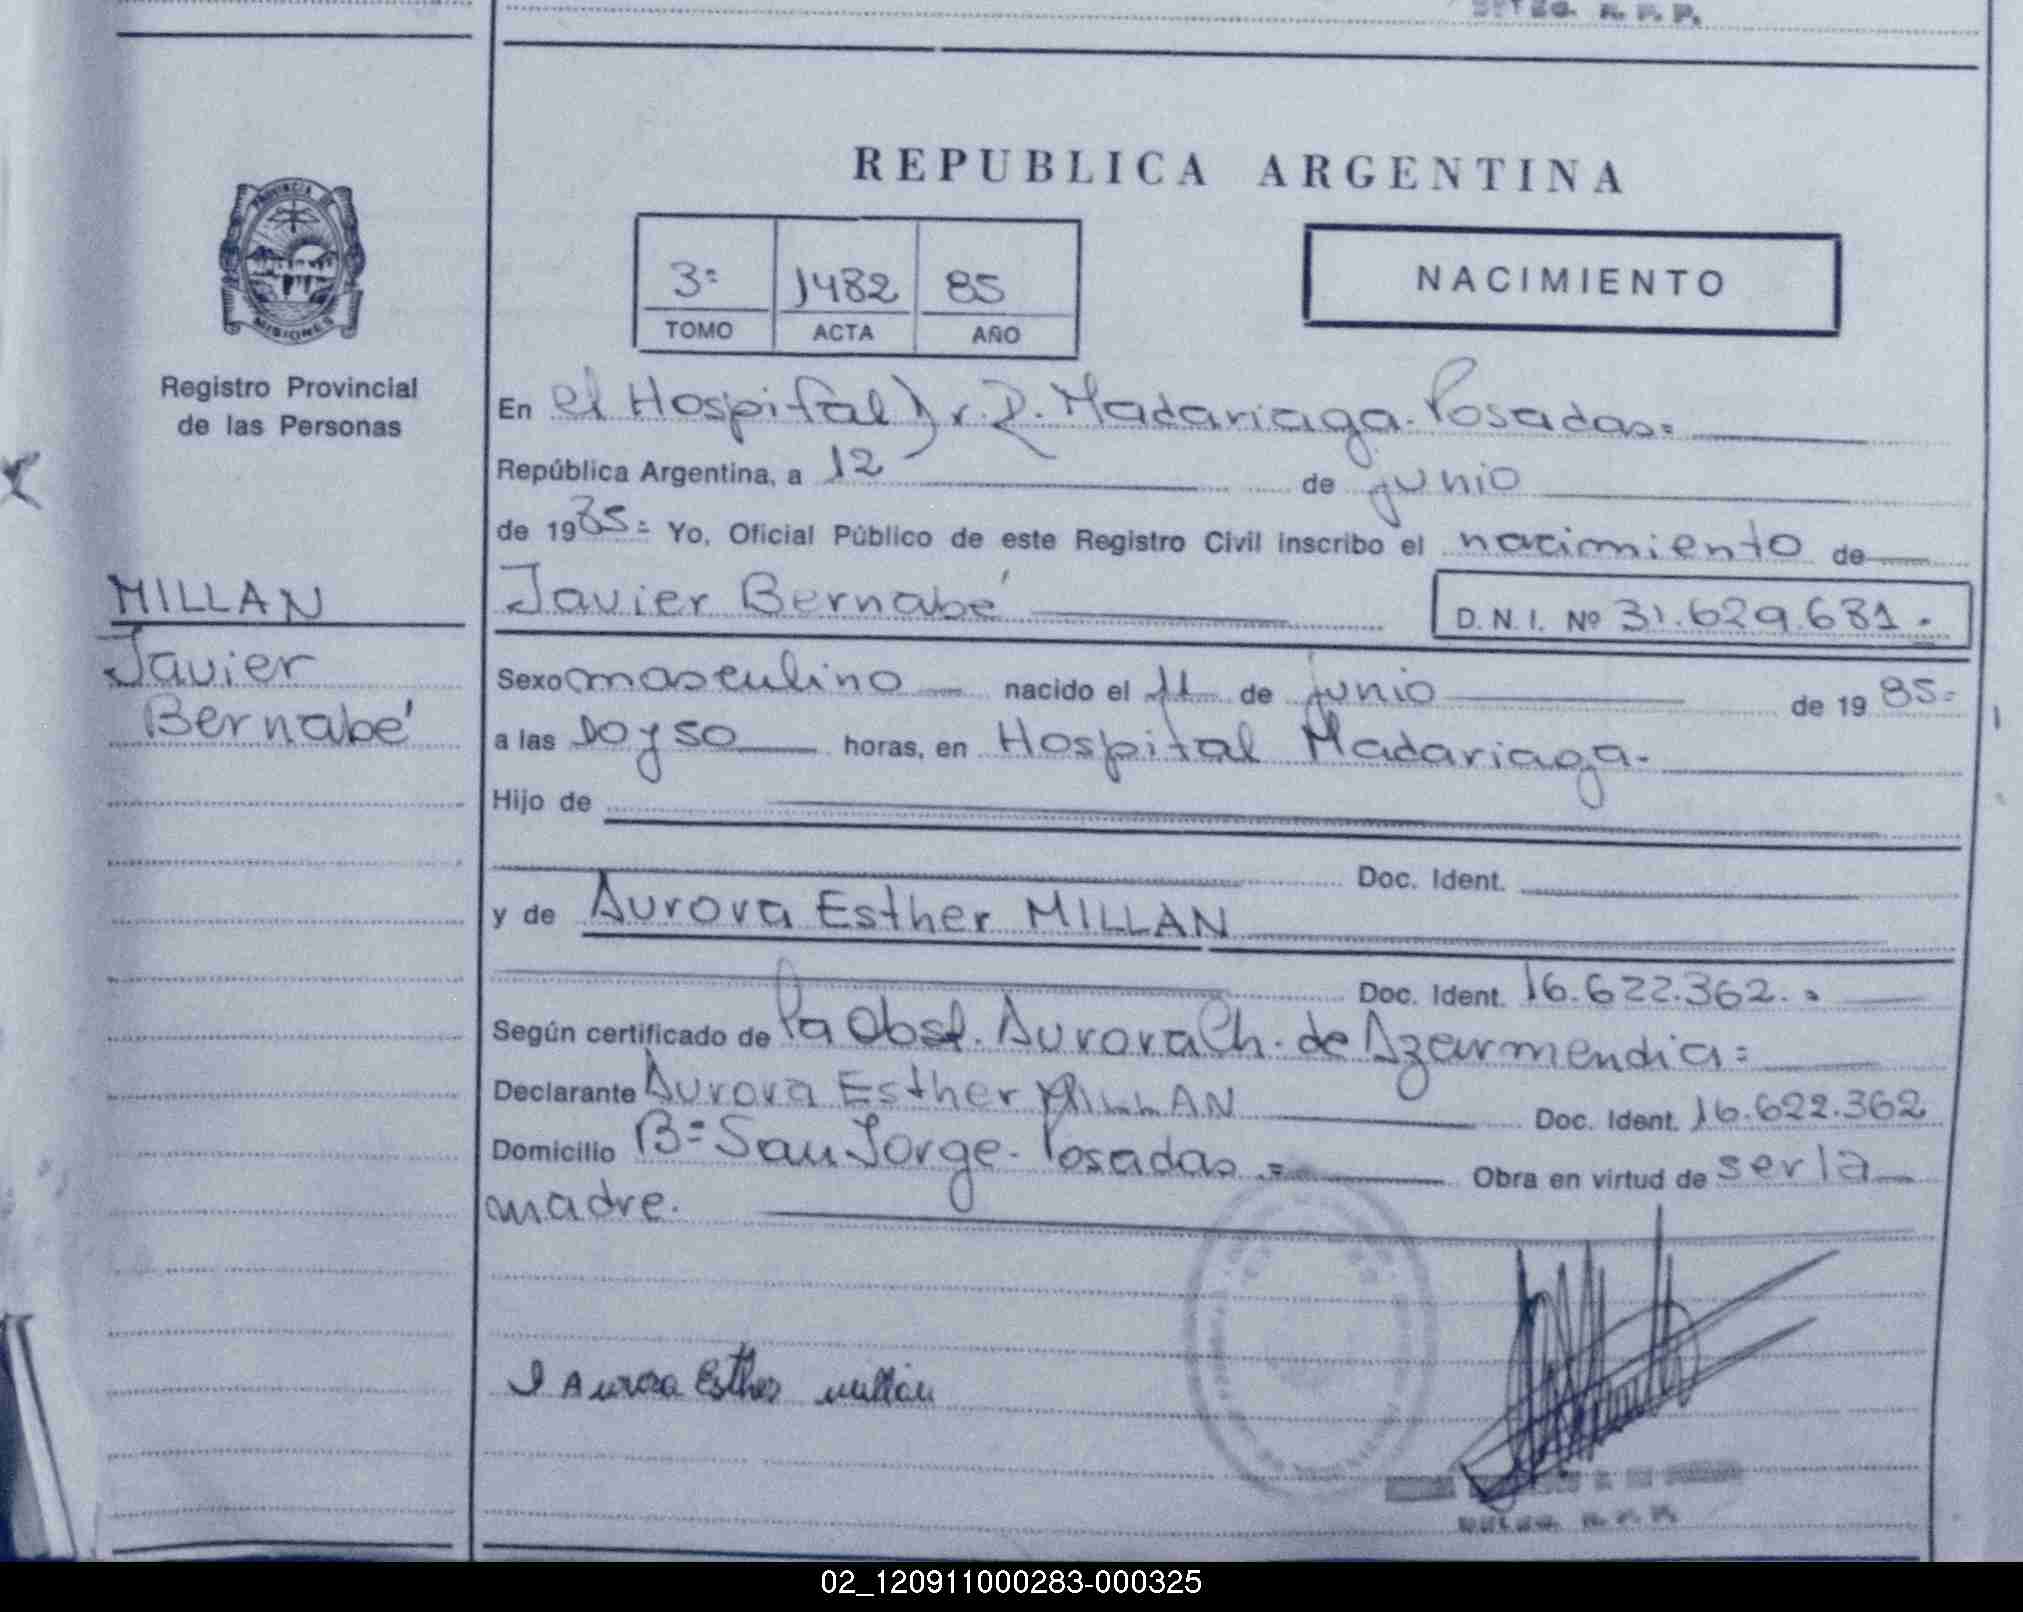 R. P. P.
REPUBLICA ARGENTINA
PROVINCIA DE
MISIONES
3º 1482 85
TOMO ACTA AÑO
NACIMIENTO
Registro Provincial
de las Personas
En el Hospital Dr. R. Madariaga. Posadas=
República Argentina, a 12 de junio
de 1985= Yo, Oficial Público de este Registro Civil inscribo el nacimiento de
MILLAN
Javier
Bernabé
Javier Bernabé D.N.I. Nº 31.629.681.
Sexo masculino nacido el 11 de junio de 1985=
a las 10 y 50 horas, en Hospital Madariaga.
Hijo de
Doc. Ident.
y de Aurora Esther MILLAN
Doc. Ident. 16.622.362.
Según certificado de la Obst. Aurora Ch. de Azarmendia=
Declarante Aurora Esther MILLAN Doc. Ident. 16.622.362
Domicilio Bº San Jorge. Posadas = Obra en virtud de ser la
madre.
Aurora Esther millan
R. P. P.
02_120911000283-000325